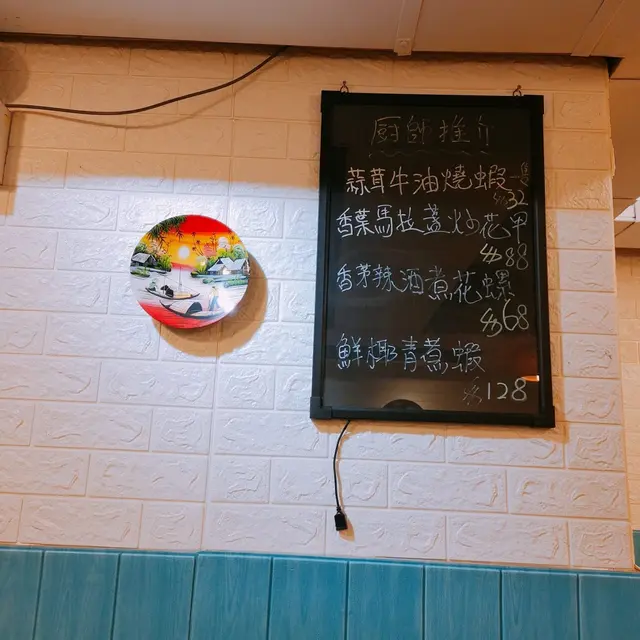 廚師推介
蒜茸牛油燒蝦一隻
$32
香葉馬拉盞炒花甲
$88
香茅辣酒煮花螺
$68
鮮椰青煮蝦
$128